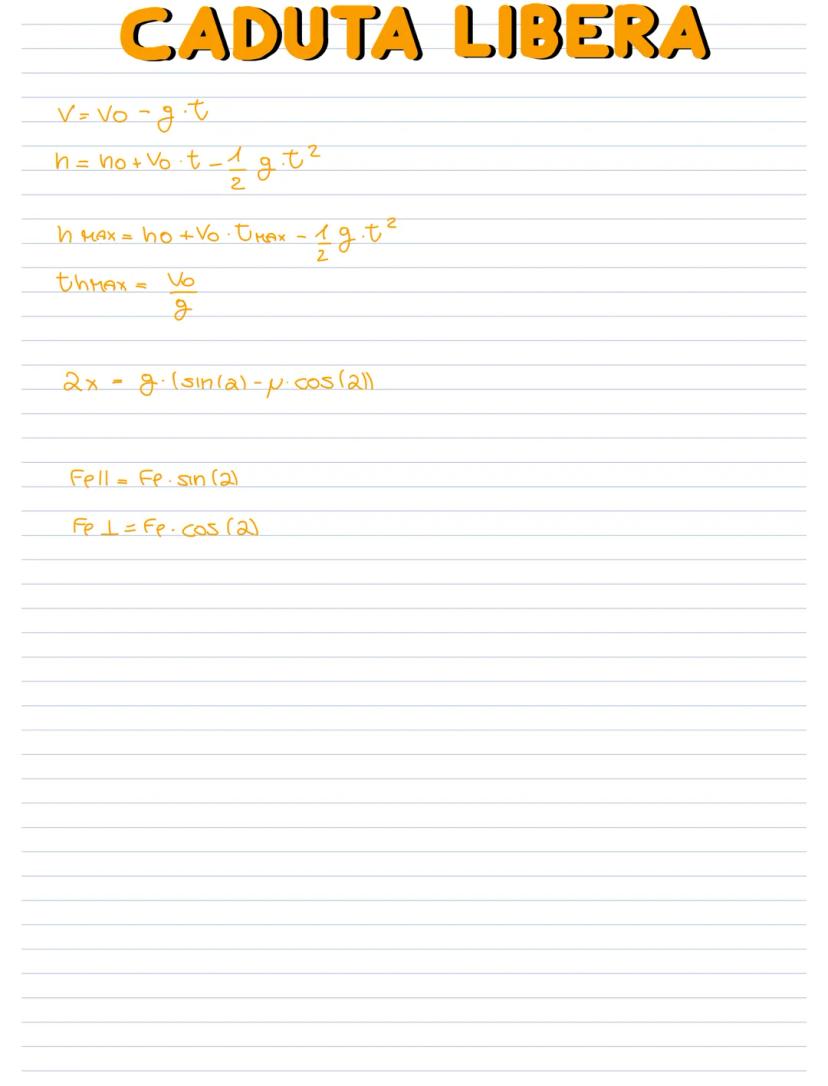 CADUTA LIBERA
V = Vo - g · t
h = ho + Vo · t - 1/2 g · t²
h MAX = ho + Vo · t MAX - 1/2 g · t²
t h MAX = Vo/g
2x = g · (sin(2) - μ · cos(2))
Fp || = Fp · sin(2)
Fp ⊥ = Fp · cos(2)